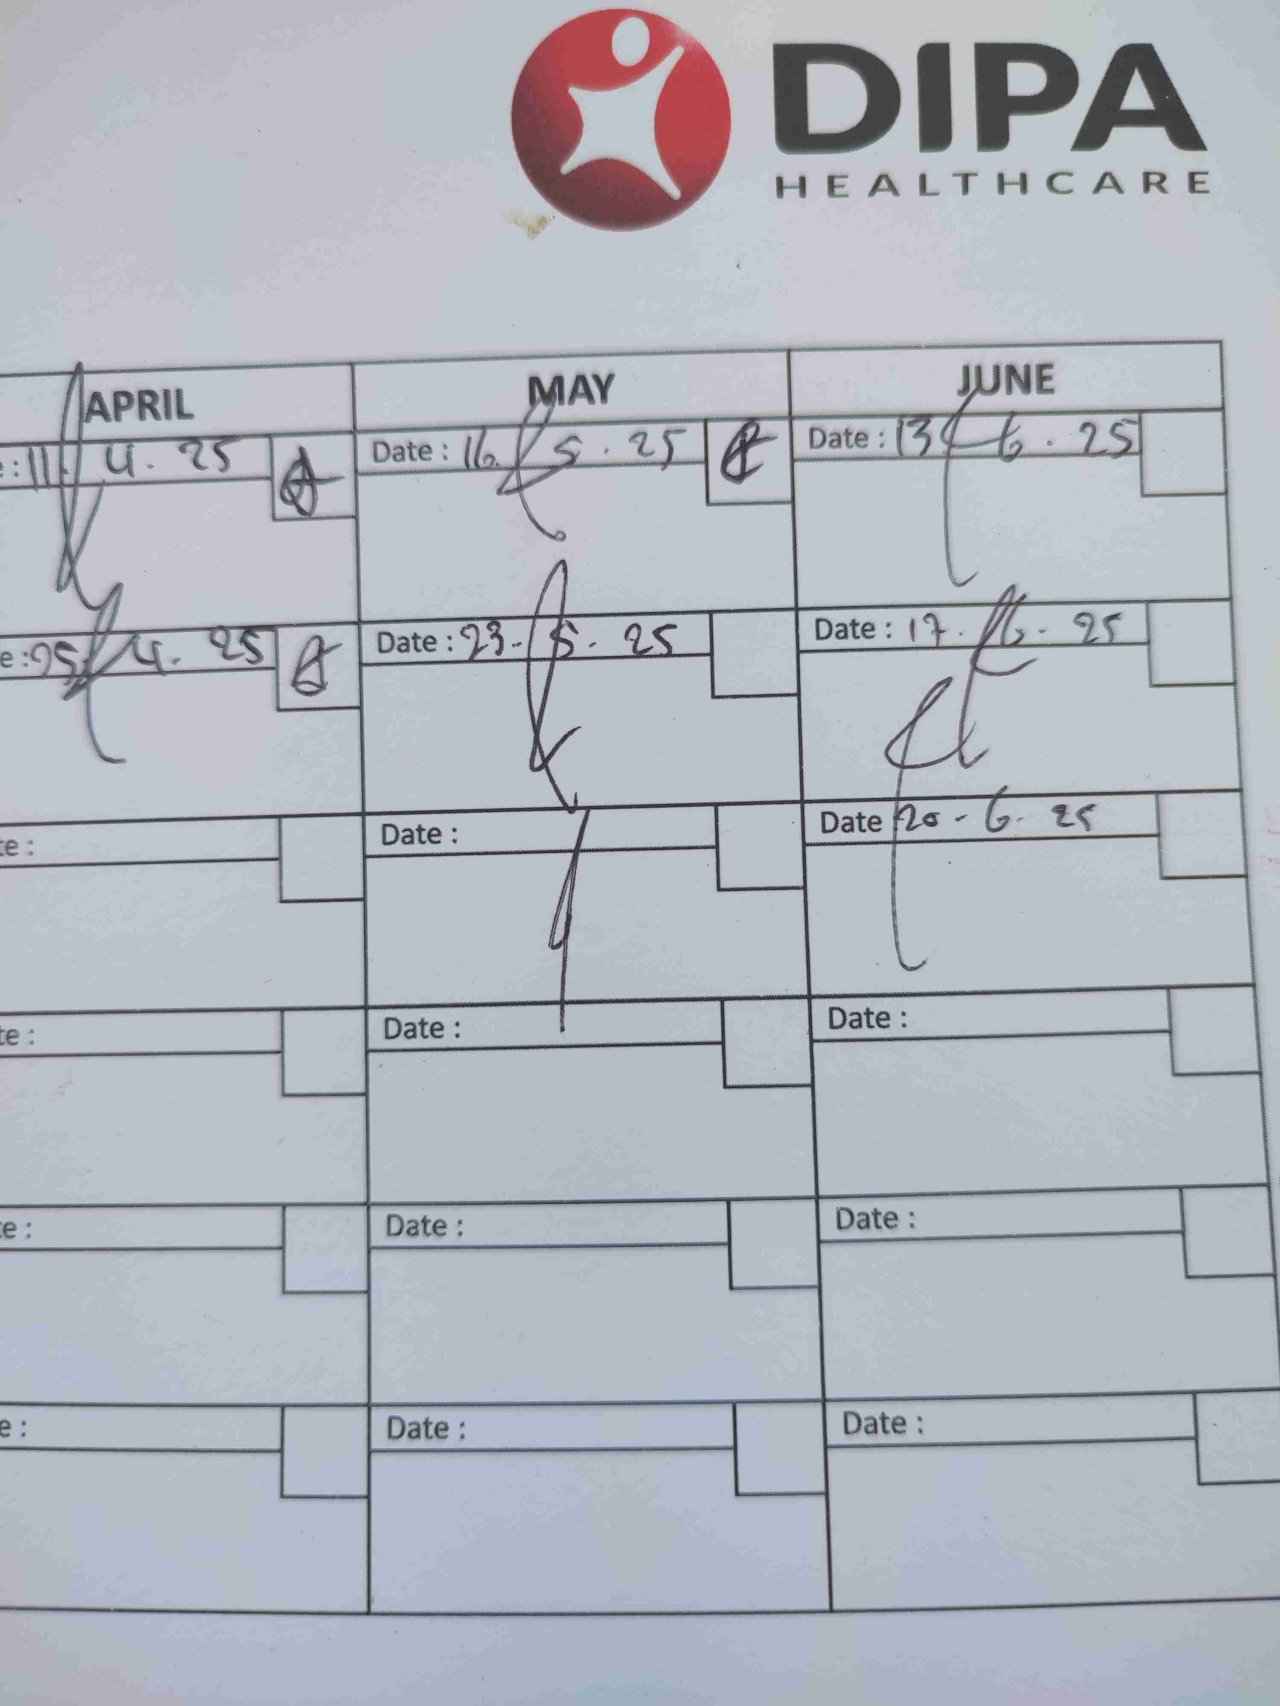 DIPA
HEALTHCARE
APRIL MAY JUNE
e : 11. 4. 25 Date : 16. 5. 25 Date : 13 - 6. 25
e : 25. 4. 25 Date : 23- 5. 25 Date : 17. 6. 25
te : Date : Date 20 - 6. 25
te : Date : Date :
te : Date : Date :
e : Date : Date :